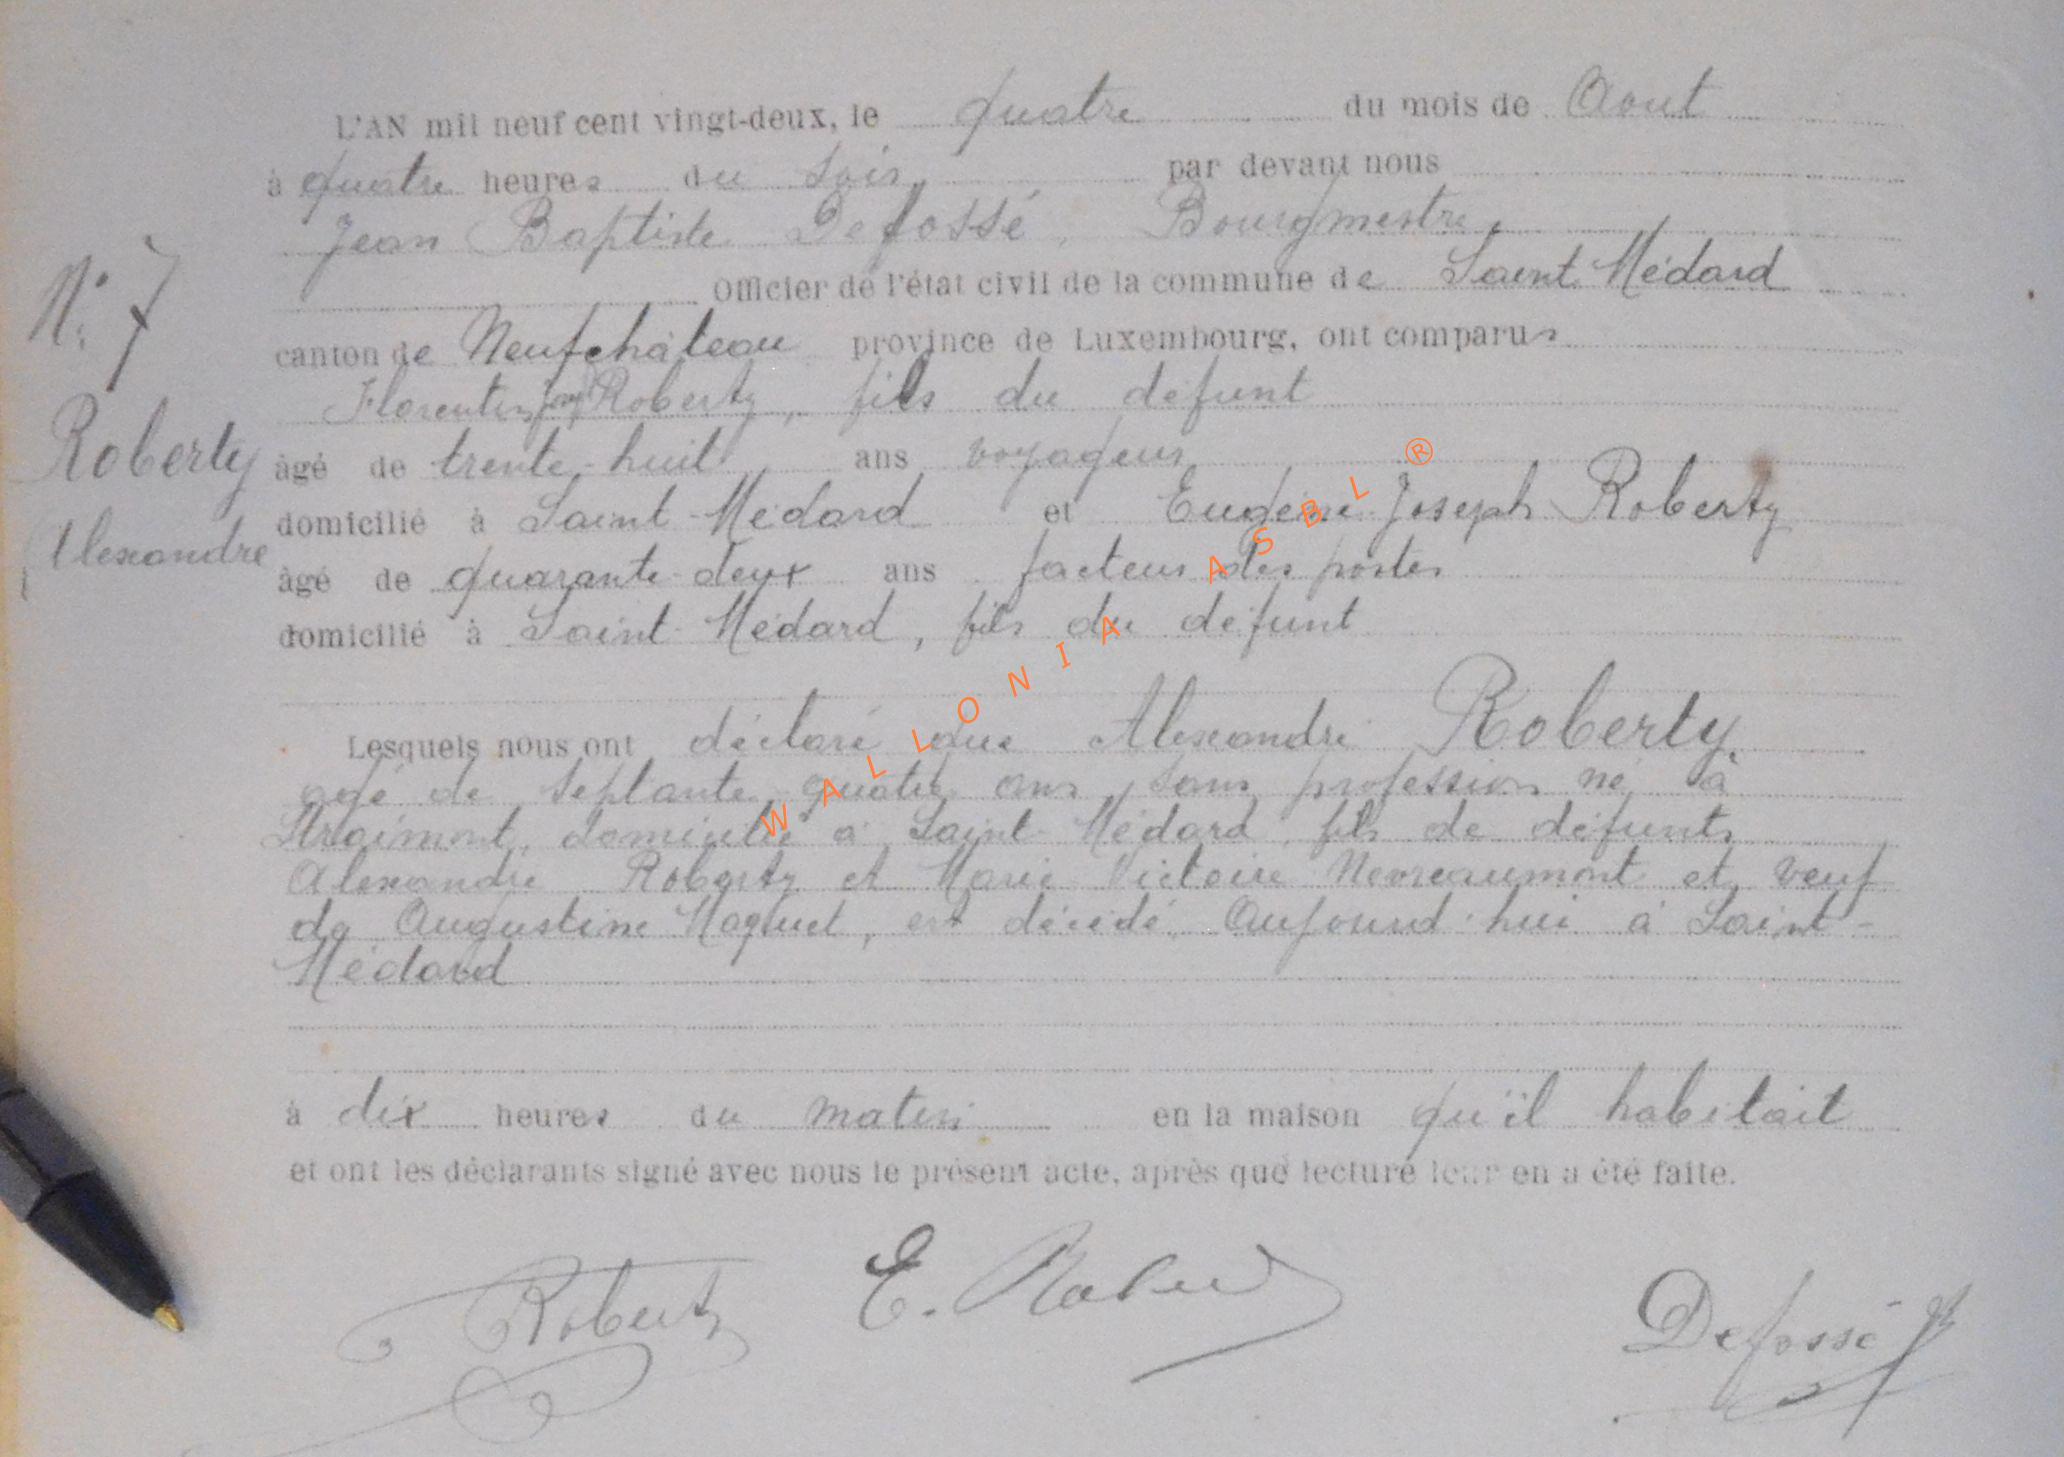 L'AN mil neuf cent vingt-deux, le quatre du mois de Aout
à quatre heures du soir par devant nous
Jean Baptiste Defossé, Bourgmestre
Officier de l'état civil de la commune de Saint-Médard
N° 7
canton de Neufchâteau province de Luxembourg, ont comparus
Florentin Roberty, fils du défunt
Roberty
âgé de trente-huit ans voyageur
domicilié à Saint-Médard et Eugène Joseph Roberty
Alexandre
âgé de quarante-deux ans facteur des postes
domicilié à Saint-Médard, fils du défunt
Lesquels nous ont déclaré que Alexandre Roberty,
agé de septante-quatre ans, sans profession né à
Straimont, domicilié à Saint-Médard, fils de défunts
Alexandre Roberty et Marie Victoire Nevreaumont et veuf
de Augustine Maquet, est décédé Aujourd'hui à Saint-
Médard
à dix heures du matin en la maison qu'il habitait
et ont les déclarants signé avec nous le présent acte, après que lecture leur en a été faite.
Roberty E. Roberty Defossé JB
WALLONIA ASBL ®